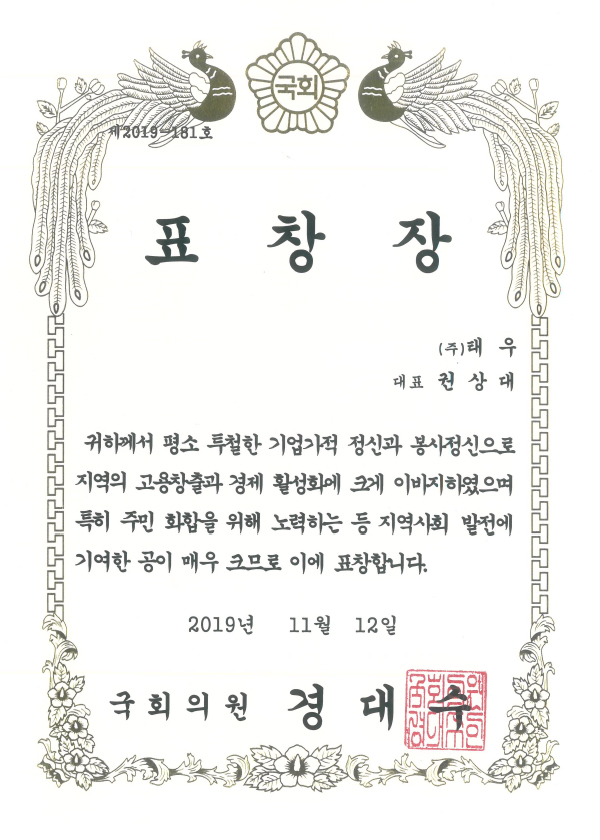 국회
제2019-181호
표 창 장
(주)태 우
대표 권 상 대
귀하께서 평소 투철한 기업가적 정신과 봉사정신으로
지역의 고용창출과 경제 활성화에 크게 이바지하였으며
특히 주민 화합을 위해 노력하는 등 지역사회 발전에
기여한 공이 매우 크므로 이에 표창합니다.
2019년 11월 12일
국회의원 경 대 수